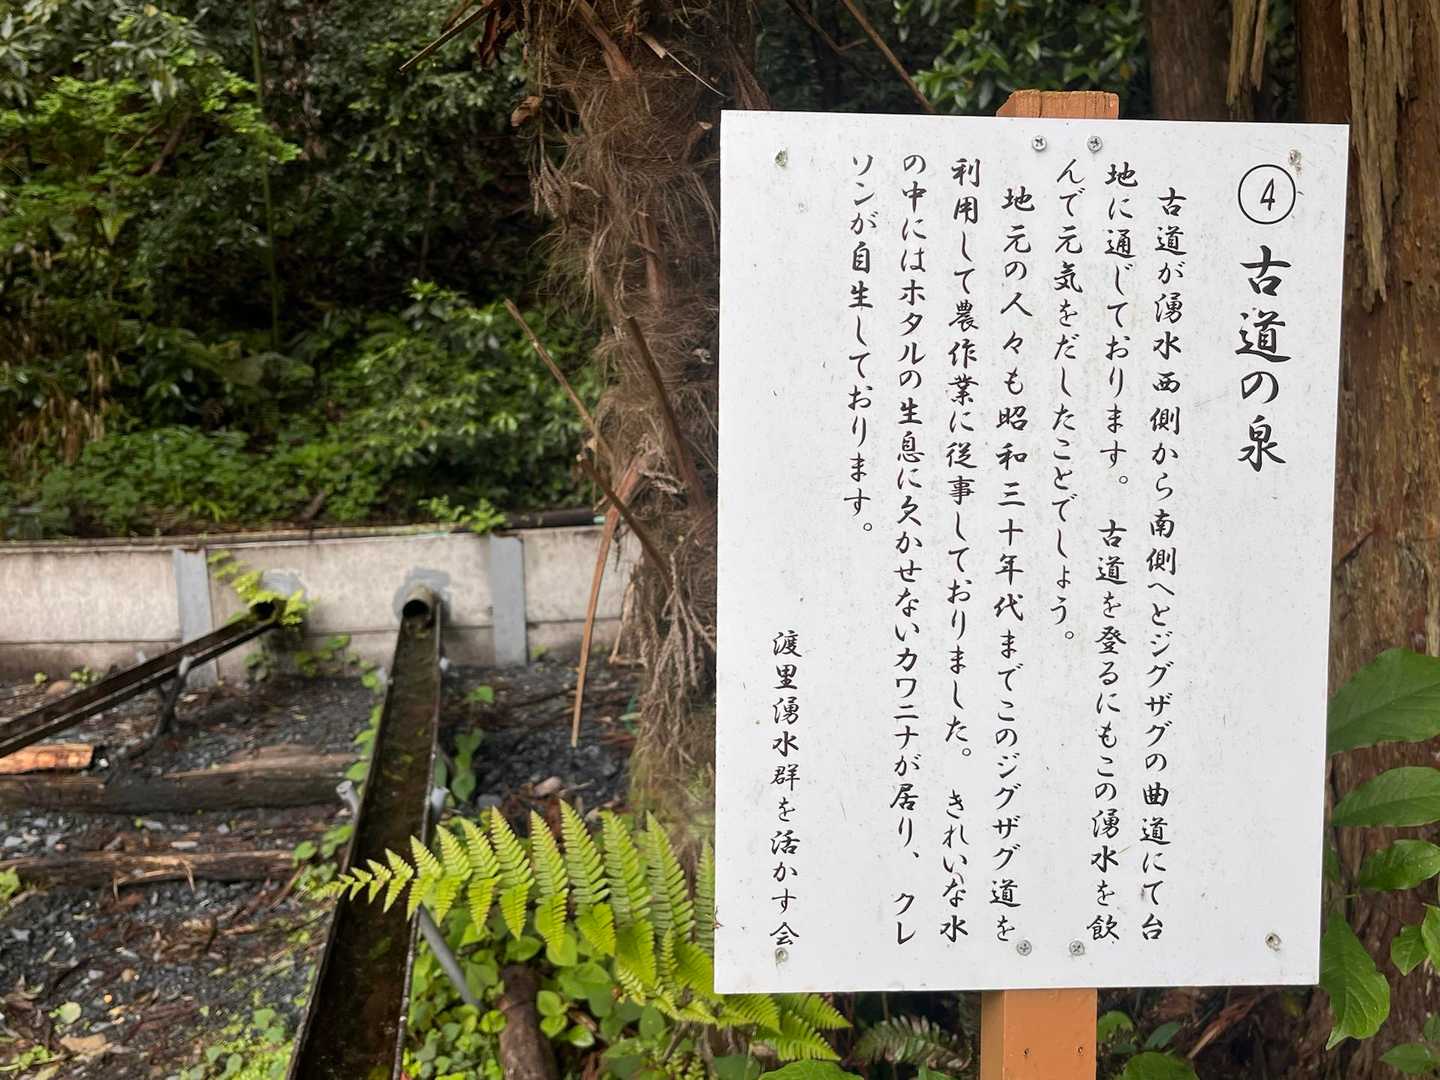 ④ 古道の泉
古道が湧水西側から南側へとジグザグの曲道にて台
地に通じております。 古道を登るにもこの湧水を飲
んで元気をだしたことでしょう。
地元の人々も昭和三十年代までこのジグザグ道を
利用して農作業に従事しておりました。 きれいな水
の中にはホタルの生息に欠かせないカワニナが居り、 クレ
ソンが自生しております。
渡里湧水群を活かす会